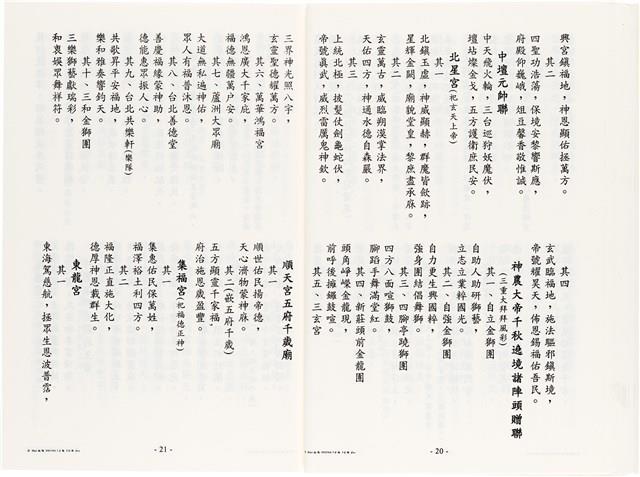 興宮鎮福地，神恩顯佑拯萬方。
其二
四聖功浩蕩，保境安黎響斯應，
府殿仰巍峨，俎豆馨香敬惟誠。
中壇元帥聯
中天飛火輪，三台巡狩妖魔伏，
壇坫燦金戈，五方護衛庶民安。
北星宮(祀玄天上帝)
其一
北鎮玉虛，神威顯赫，群魔皆斂跡，
星輝金闕，廟貌堂皇，黎庶盡承庥。
其二
玄靈萬古，威臨朔漠掌法界，
天佑四方，神通水德自森嚴。
其三
上統北極，披髮仗劍龜蛇伏，
帝號真武，威烈雷厲鬼神欽。
其四
玄武臨福地，施法驅邪鎮斯境，
帝號耀昊天，佈恩錫福佑吾民。
神農大帝千秋遶境諸陣頭贈聯
(三重大拜拜風彩)
其一：自立金獅團
自助人助研獅藝，
立志立業粹國光。
其二、自強金獅團
自力更生興國粹，
強身團結倡舞獅。
其三、四腳亭璄獅團
四方八面喧獅鼓，
腳蹈手舞滿堂紅。
其四、新莊頭前金龍團
頭角崢嶸金龍現，
前呼後擁鑼鼓喧。
其五、三玄宮
- 20 -
三界神光照八字，
玄靈聖德耀萬方。
其六、萬華鴻福宮
鴻恩廣大千家庇，
福德無疆萬戶安。
其七、蘆洲大眾廟
大道無私遍神佑，
眾人有福普沐恩。
其八、台北善德堂
善慶福緣蒙神助，
德能惠眾振人心。
其九、台北共樂軒(樂隊)
共歌昇平安福地，
樂和雅奏響鈞天。
其十、三和金獅團
三樂獅藝獻瑞彩，
和衷娛眾舞祥符。
順天宮五府千歲廟
其一
順世佑民揚帝德，
天心濟物蒙神庥。
其二(嵌五府千歲)
五方顯靈千家福，
府治施恩歲盈豐。
集福宮(祀福德正神)
其一
集惠佑民保萬姓，
福澤裕土利四方。
其二
福隆正直施大化，
德厚神恩載群生。
東龍宮
其一
東海駕慈航，拯眾生恩波普霑，
- 21 -